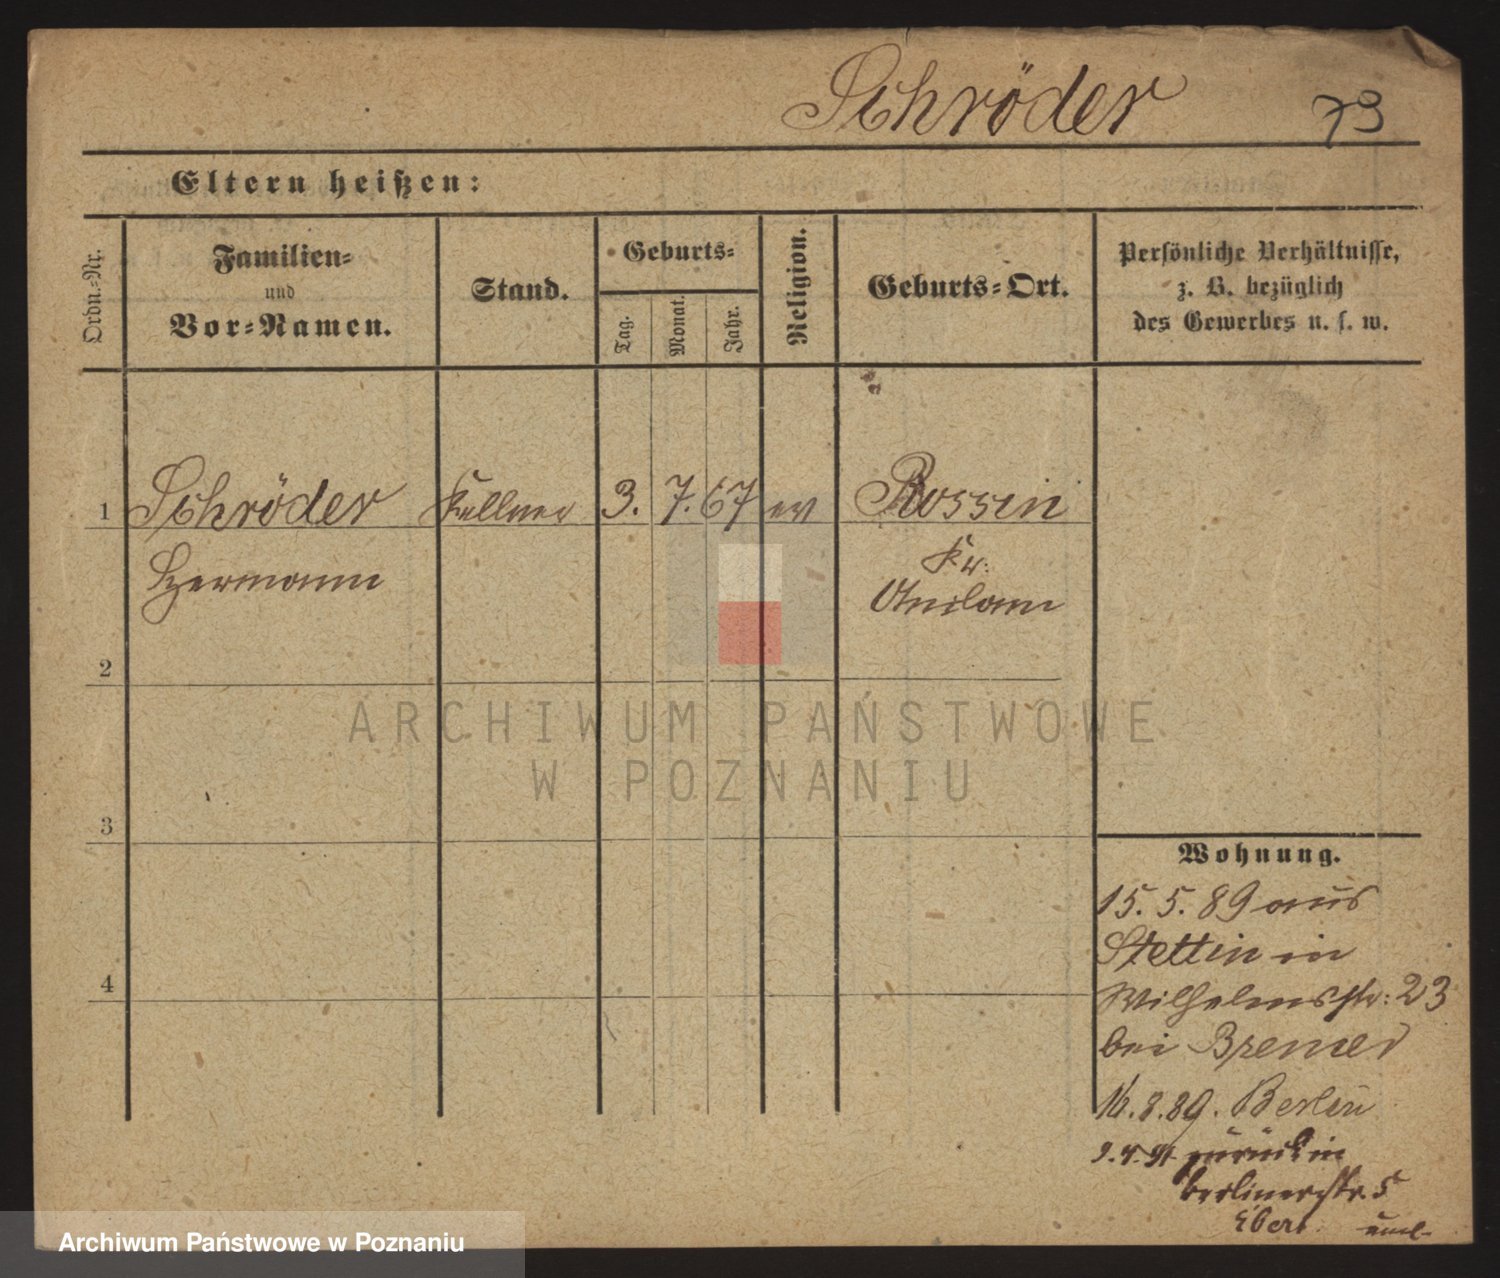 Schröder 73
Eltern heißen:
Ordn.-Nr.
Familien-
und
Vor-Namen.
Stand.
Geburts-
Tag.
Monat.
Jahr.
Religion.
Geburts-Ort.
Persönliche Verhältnisse,
z. B. bezüglich
des Gewerbes u. s. w.
1 Schröder Kellner 3. 7. 67 ev Rossin
Hermann Kr.
Anclam
2
3
4
Wohnung.
15. 5. 89 aus
Stettin in
Wilhelmsstr: 23
bei Bremer
16. 8. 89. Berlin
zurück in
Berlinerstr. 5
Ebert
ARCHIWUM PAŃSTWOWE
W POZNANIU
Archiwum Państwowe w Poznaniu